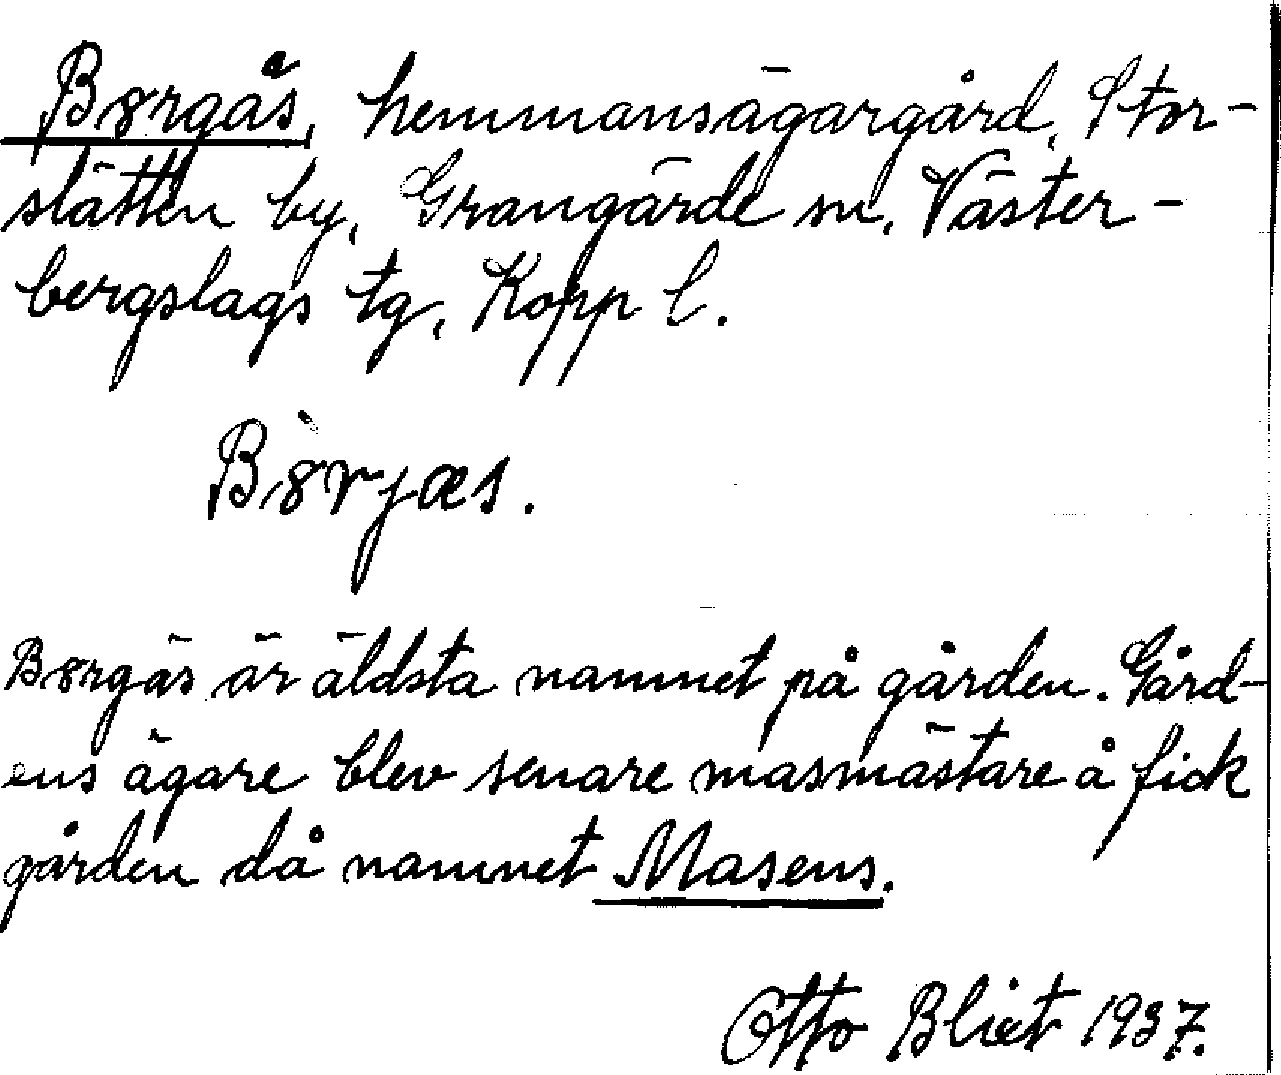 Børgås, hemmansägargård, Stor-
slätten by, Grangärde sn. Väster-
bergslags tg, Kopp l.
Børjæs.
Børgäs är äldsta namnet på gården. Gård-
ens ägare blev senare masmästare å fick
gården då namnet Masens.
Otto Blixt 1937.